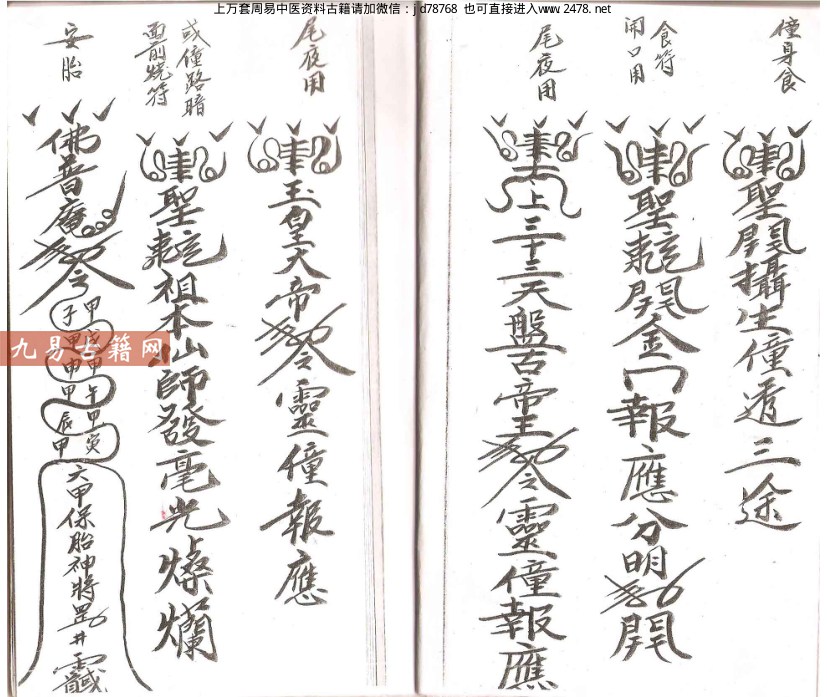 上万套周易中医资料古籍请加微信：jyd78768 也可直接进入www.2478.net
僮身食
聖開攝生僮透三途
食符
開口用
聖乾開金口報應分明開
尾夜用
上三十三天盤古帝王令靈僮報應
尾夜用
玉皇大帝令靈僮報應
或僮路暗
面前燒符
聖乾祖本仙師發毫光燦爛
安胎
佛普庵令
甲子甲戌甲申甲午甲辰甲寅
六甲保胎神將罡井
九易古籍网